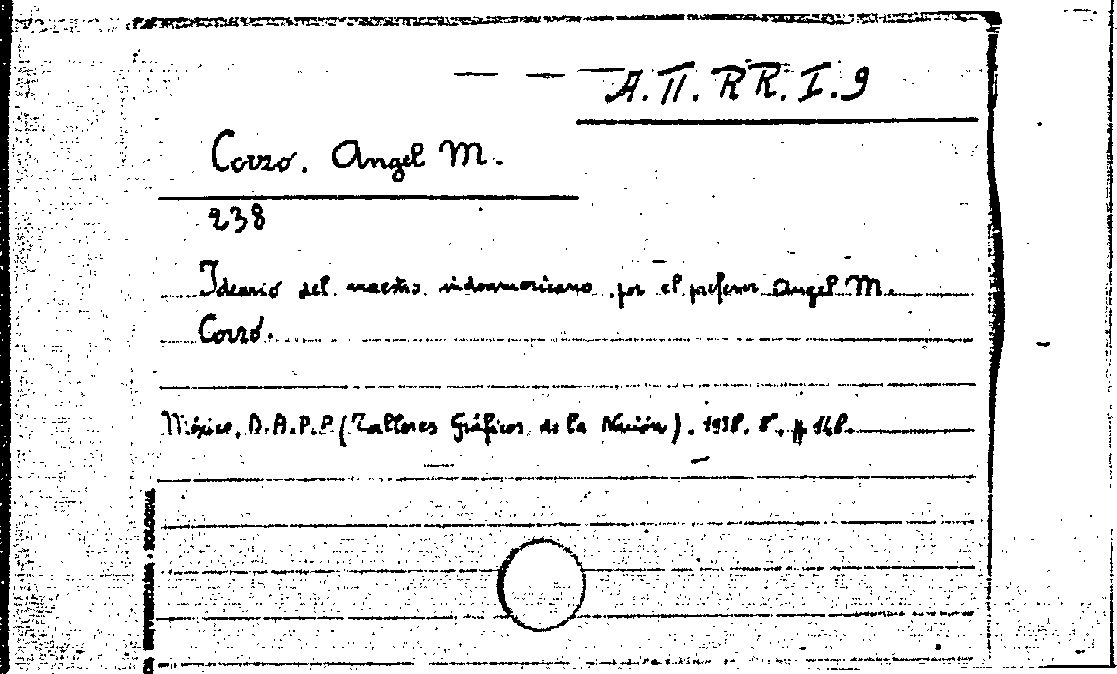 A.II.RR.I.9
Corzo. Angel M.
238
Ideario del maestro indoamericano, por el profesor Angel M.
Corzo.
México, D.A.P.P. (Talleres Gráficos de la Nación). 1938. 8°. 148.
UNIVERSITARIA - BOLOGNA